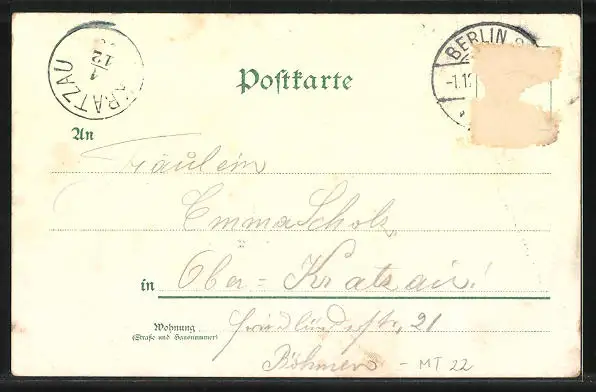 KRATZAU
1
12
BERLIN
-1.12
Postkarte
An
Fräulein
Emma Scholz
in Ober = Kratzau!
Wohnung
(Straße und Hausnummer)
Friedländerstr, 21
Böhmen - MT 22